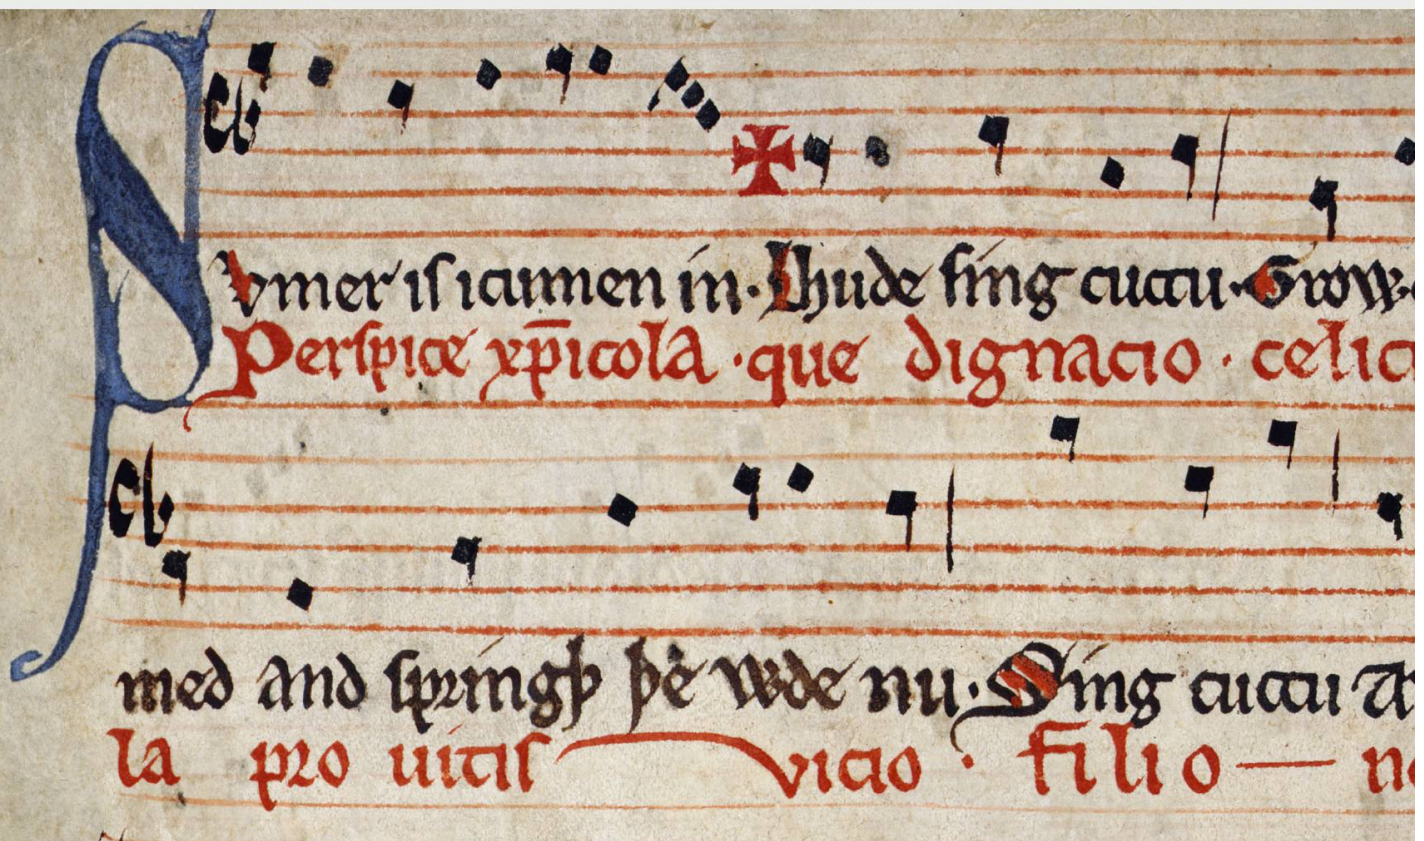 Svmer is icumen in. Lhude sing cuccu. Growe
Perspice xp̄icola .que dignacio . celic
med and springþ þe wde nu. Sing cuccu
la pro uitis vicio . filio — no